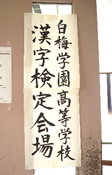 白梅学園高等学校
漢字検定会場